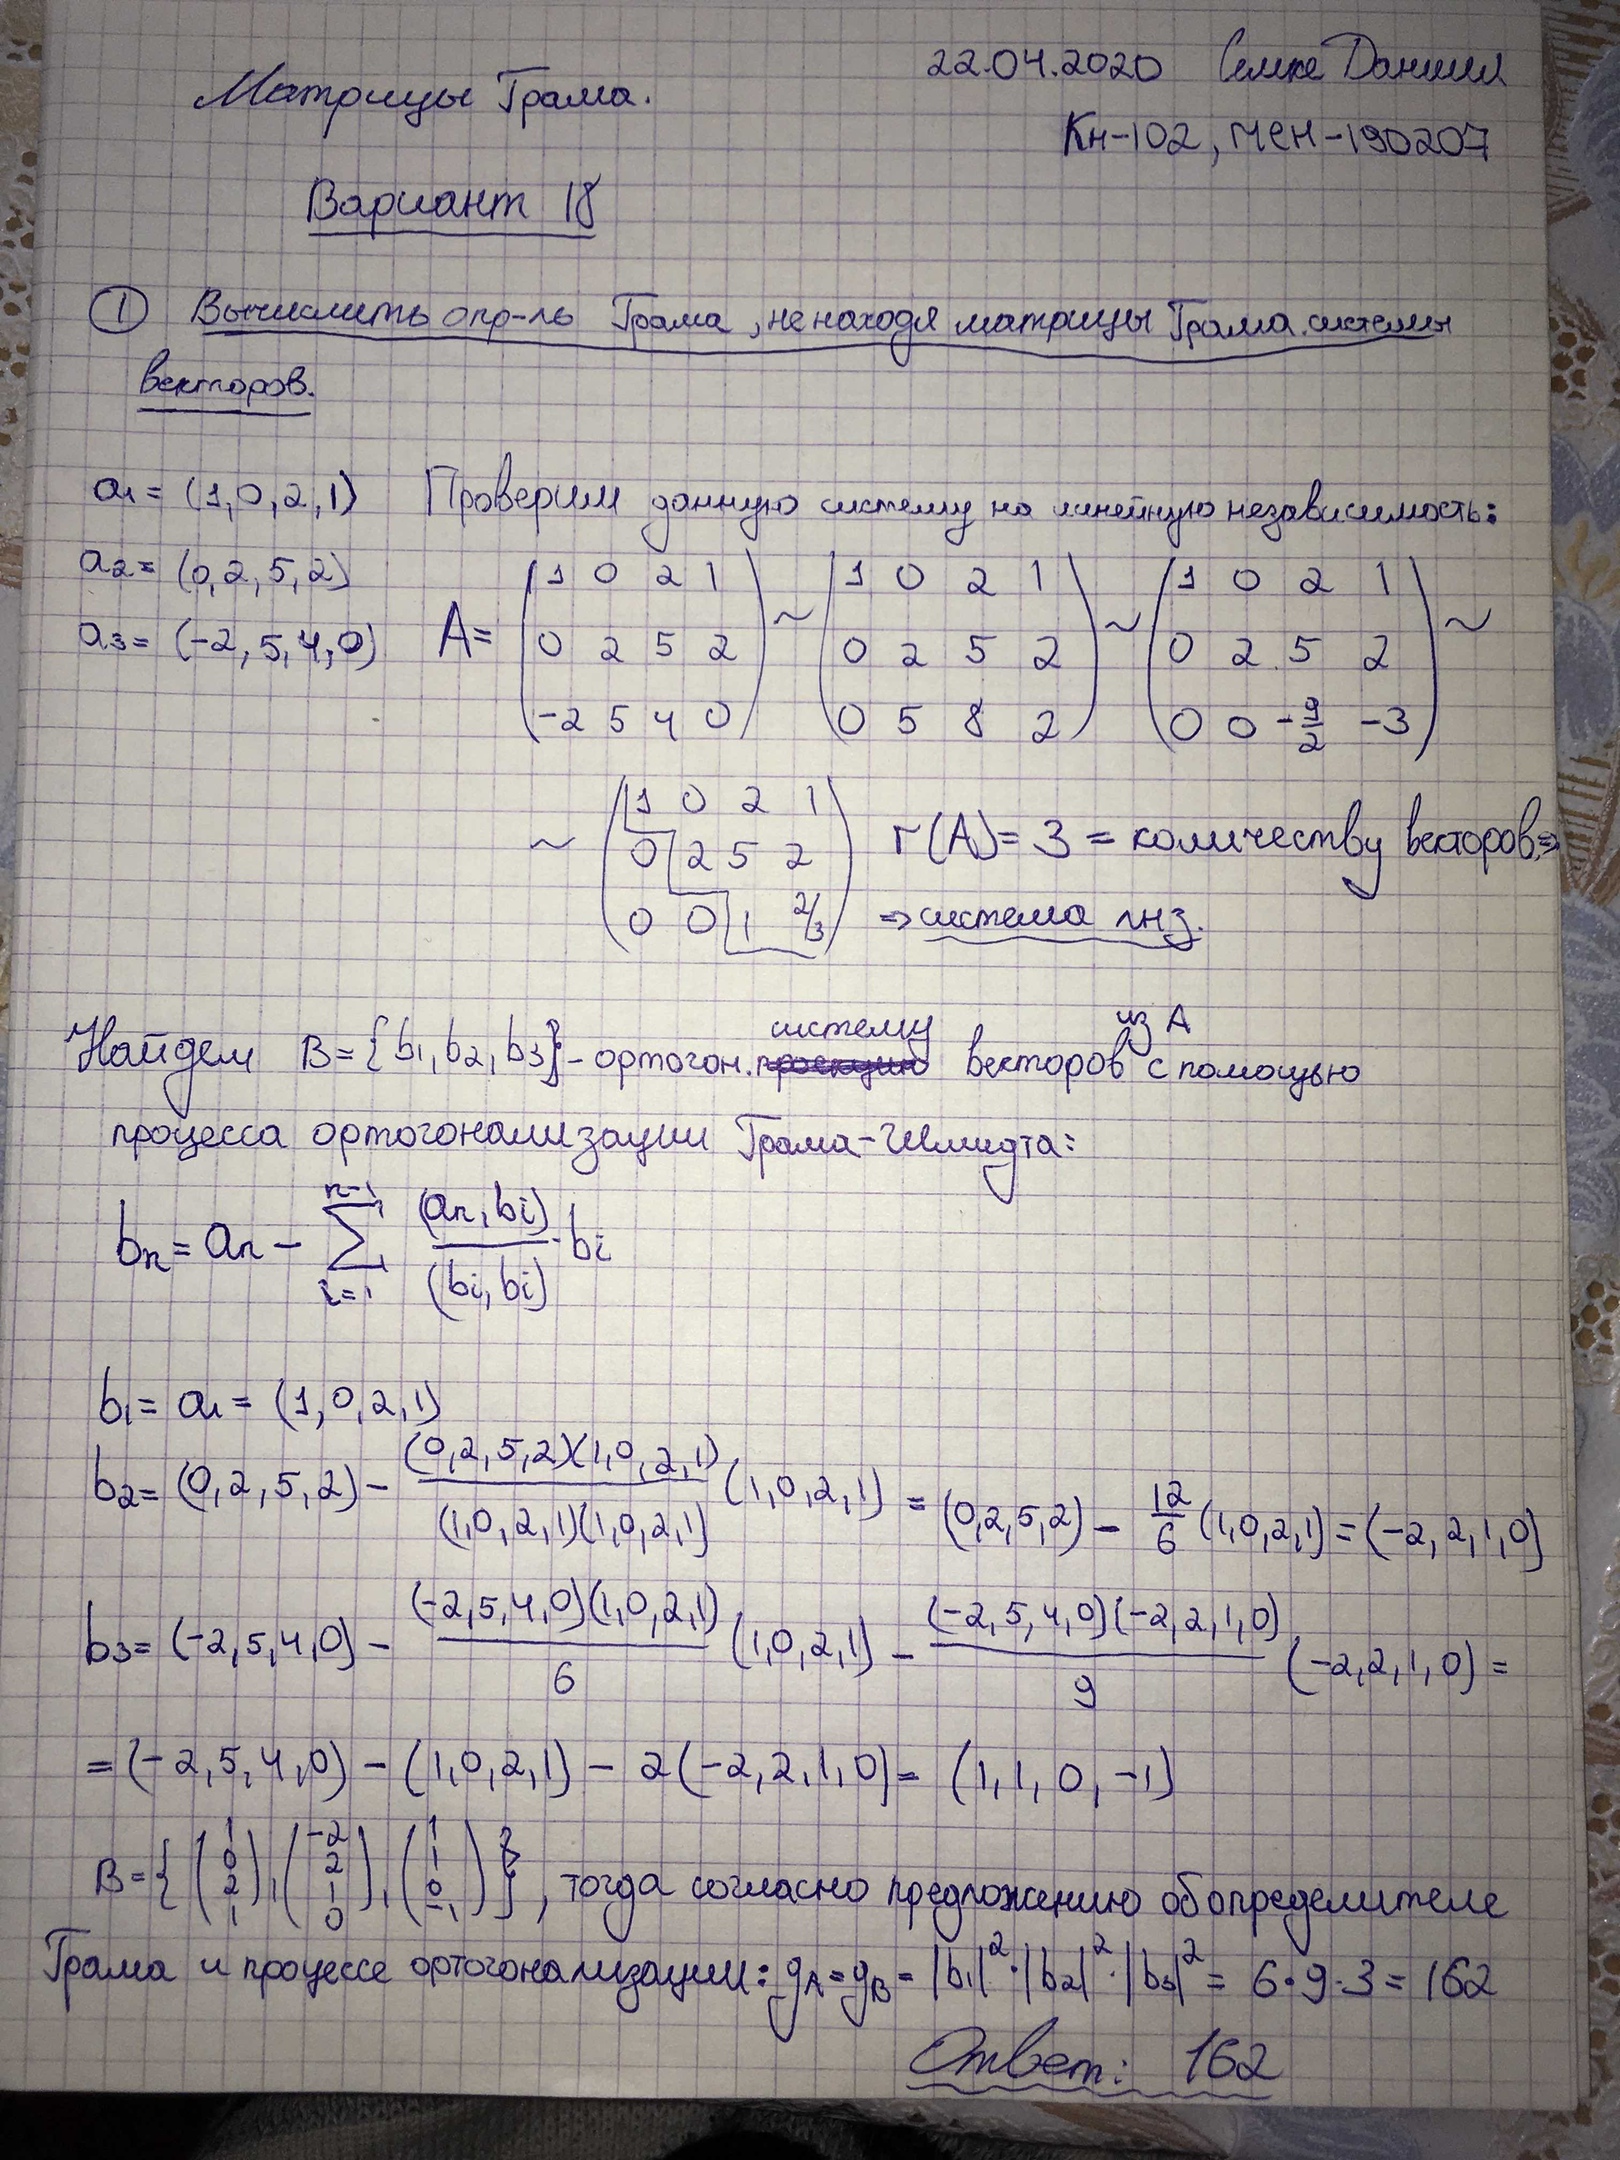 22.04.2020 Семке Даниил
Матрицы Грама.
Кн-102, МЕН-190207
Вариант 18
① Вычислить опр-ль Грама, не находя матрицы Грама системы
векторов.
a₁ = (1,0,2,1) Проверим данную систему на линейную независимость:
a₂ = (0,2,5,2)
a₃ = (-2,5,4,0)
A = (1 0 2 1 ; 0 2 5 2 ; -2 5 4 0) ~ (1 0 2 1 ; 0 2 5 2 ; 0 5 8 2) ~ (1 0 2 1 ; 0 2 5 2 ; 0 0 -9/2 -3) ~
~ (1 0 2 1 ; 0 2 5 2 ; 0 0 1 2/3) r(A) = 3 = количеству векторов ⇒
⇒ система лнз.
Найдем B = {b₁, b₂, b₃} - ортогон. систему векторов из A с помощью
процесса ортогонализации Грама-Шмидта:
bₙ = aₙ - ∑ᵢ₌₁ⁿ⁻¹ (aₙ, bᵢ)/(bᵢ, bᵢ) · bᵢ
b₁ = a₁ = (1,0,2,1)
b₂ = (0,2,5,2) - (0,2,5,2)(1,0,2,1)/(1,0,2,1)(1,0,2,1) (1,0,2,1) = (0,2,5,2) - 12/6 (1,0,2,1) = (-2,2,1,0)
b₃ = (-2,5,4,0) - (-2,5,4,0)(1,0,2,1)/6 (1,0,2,1) - (-2,5,4,0)(-2,2,1,0)/9 (-2,2,1,0) =
= (-2,5,4,0) - (1,0,2,1) - 2(-2,2,1,0) = (1,1,0,-1)
B = {(1 0 2 1), (-2 2 1 0), (1 1 0 -1)}, тогда согласно предложению об определителе
Грама и процессе ортогонализации: g_A = g_B = |b₁|² · |b₂|² · |b₃|² = 6·9·3 = 162
Ответ: 162